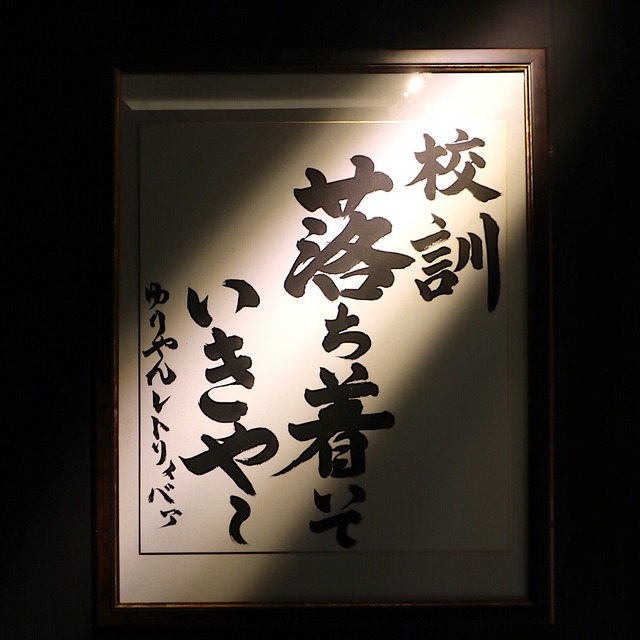 校訓
落ち着いて
いきや〜
ゆりやんレトリィバァ